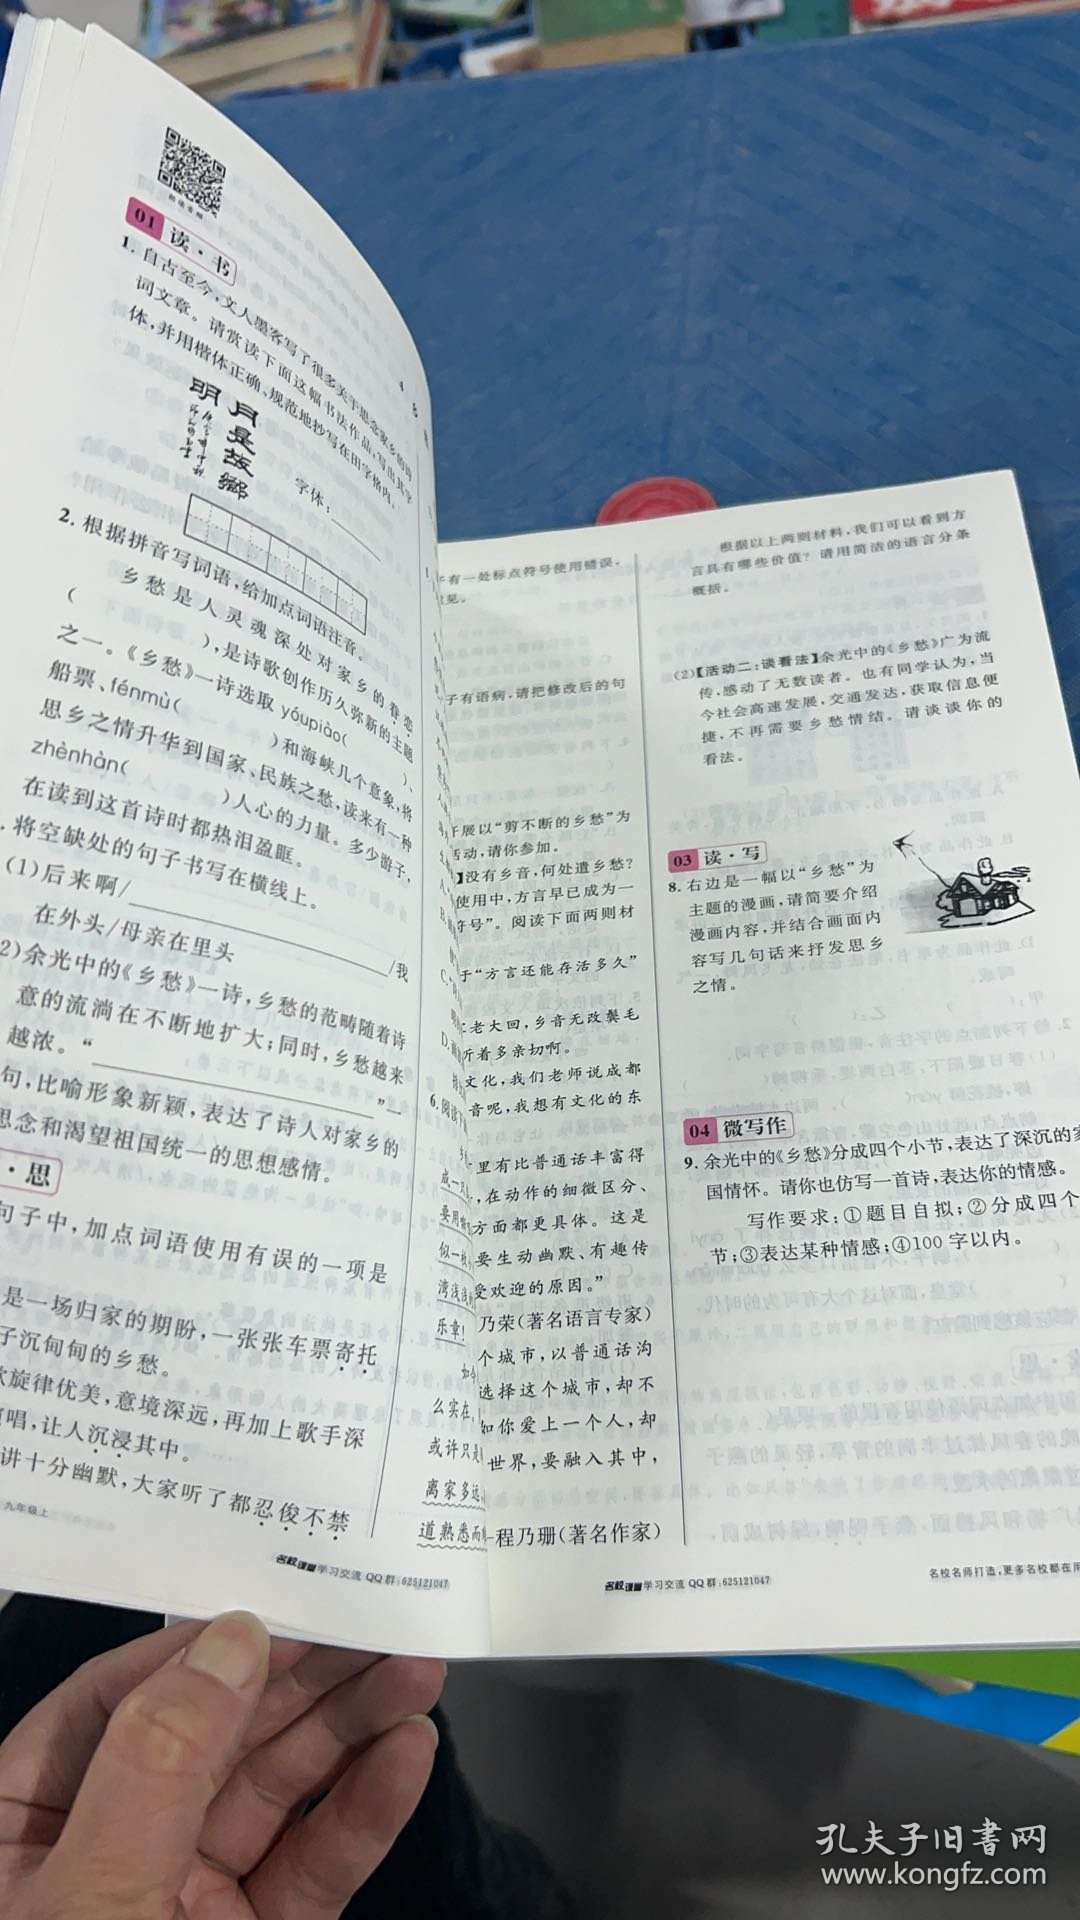 扫码看视频
01 读·书
1. 自古至今，文人墨客写了很多关于思念家乡的诗
词文章。请赏读下面这幅书法作品，写出其字
体，并用楷体正确、规范地抄写在田字格内。
月是故鄉
明
字体：
2. 根据拼音写词语，给加点词语注音。
乡愁是人灵魂深处对家乡的眷恋
( )，是诗歌创作历久弥新的主题
之一。《乡愁》一诗选取yóupiào( )、
船票、fénmù( )和海峡几个意象，将
思乡之情升华到国家、民族之愁，读来有一种
zhènhàn( )人心的力量。多少游子，
在读到这首诗时都热泪盈眶。
. 将空缺处的句子书写在横线上。
(1)后来啊/
/我
在外头/母亲在里头
2)余光中的《乡愁》一诗，乡愁的范畴随着诗
意的流淌在不断地扩大；同时，乡愁越来
越浓。“ ”一
句，比喻形象新颖，表达了诗人对家乡的
思念和渴望祖国统一的思想感情。
·思
句子中，加点词语使用有误的一项是
是一场归家的期盼，一张张车票寄托
子沉甸甸的乡愁。
歌旋律优美，意境深远，再加上歌手深
演唱，让人沉浸其中。
讲十分幽默，大家听了都忍俊不禁
九年级上
名校课堂学习交流 QQ群：625121047
6. 阅读下
成一
要用
似一枚
湾浅浅的
乐章！
如今
么实在，
或许只是
离家多远，
道熟悉而
有一处标点符号使用错误，
意见。
子有语病，请把修改后的句
开展以“剪不断的乡愁”为
活动，请你参加。
】没有乡音，何处遣乡愁？
使用中，方言早已成为一
符号”。阅读下面两则材
于“方言还能存活多久”
老大回，乡音无改鬓毛
听着多亲切啊。
文化，我们老师说成都
音呢，我想有文化的东
里有比普通话丰富得
，在动作的细微区分、
方面都更具体。这是
要生动幽默、有趣传
受欢迎的原因。”
乃荣（著名语言专家）
个城市，以普通话沟
选择这个城市，却不
如你爱上一个人，却
世界，要融入其中，
—程乃珊（著名作家）
名校课堂学习交流 QQ群：625121047
根据以上两则材料，我们可以看到方
言具有哪些价值？请用简洁的语言分条
概括。
(2)【活动二：谈看法】余光中的《乡愁》广为流
传，感动了无数读者。也有同学认为，当
今社会高速发展，交通发达，获取信息便
捷，不再需要乡愁情结。请谈谈你的
看法。
03 读·写
8. 右边是一幅以“乡愁”为
主题的漫画，请简要介绍
漫画内容，并结合画面内
容写几句话来抒发思乡
之情。
04 微写作
9. 余光中的《乡愁》分成四个小节，表达了深沉的家
国情怀。请你也仿写一首诗，表达你的情感。
写作要求：①题目自拟；②分成四个
节；③表达某种情感；④100字以内。
名校名师打造，更多名校都在用
孔夫子旧書网
www.kongfz.com